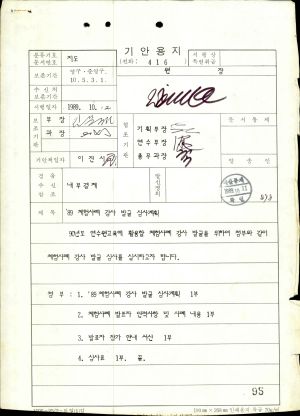 기안용지
분류기호
문서번호
지도
(전화: 416)
시행상
특별취급
보존기간
영구·준영구
10. 5. 3. 1.
원 장
수신처
보존기간
시행일자
1989. 10. 12
보조기관
부장
과장
협조기관
기획부장
연수부장
총무과장
문서통제
기안책임자
이진
발송인
경유
수신
참조
내부결재
발신명의
1989.10.11
제목
'89 체험사례 강사 발굴 심사계획
90년도 연수원교육에 활용할 체험사례 강사 발굴을 위하여 첨부와 같이
체험사례 강사 발굴 심사를 실시하고자 합니다.
첨부 : 1. '89 체험사례 강사 발굴 심사계획 1부
2. 체험사례 발표자 인적사항 및 사례 내용 1부
3. 발표자 참가 안내 서신 1부
4. 심사표 1부. 끝.
95